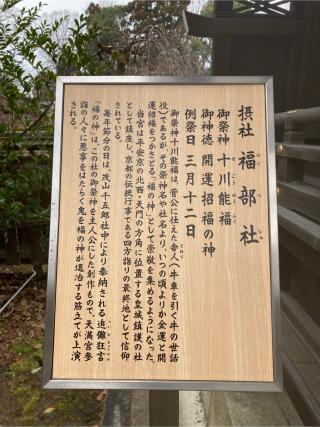 摂社 福部社
ふくべしゃ
御祭神 十川能福
そごうのうふく
御神徳 開運招福の神
例祭日 三月十二日
御祭神十川能福は、菅公に仕えた舎人(牛車を引く牛の世話
とねり
役)であるが、その祭神名や社名より、いつの頃よりか金運と開
運招福をつかさどる「福の神」として崇敬を集めるようになった。
当宮は平安京の北西・天門の方角に位置する皇城鎮護の社
として鎮座し、京都の伝統行事である四方詣りの最終地として信仰
されている。
毎年節分の日は、茂山千五郎社中により奉納される追儺狂言
「福の神」は、この社の御祭神を主人公にした創作もので、天満宮参
詣の人々に悪事をはたらく鬼を福の神が退治する筋立てが上演
される。